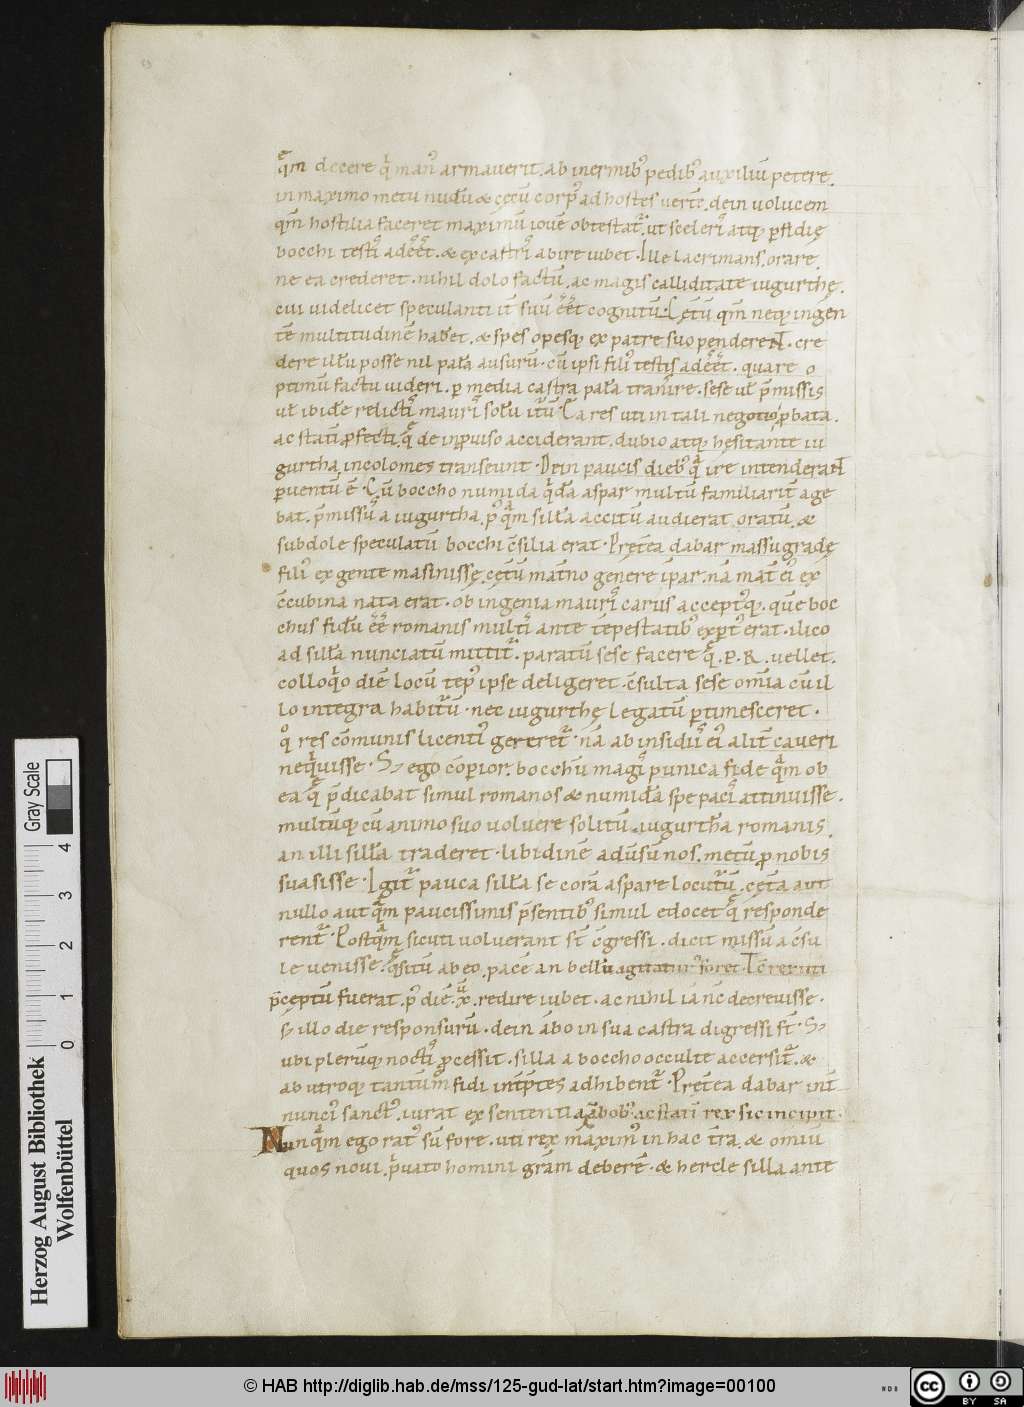 quͣm decere qͥ manꝰ armauerit. ab inermibꝰ pedibꝰ auxiliū petere.
in maximo metu nudū & cęcū corpꝰ ad hostes uertē. dein uolucem
qm̄ hostilia faceret maximū ioue obtestatᷣ. ut sceleris atq; ꝑfidię
bocchi testis adeēt. & ex castris abire iubet. Ille lacrimans. orare.
ne ea crederet. nihil dolo factū. ac magis calliditate iugurthę.
cui uidelicet speculanti it̄ suū eēt cognitū. Cętū qm̄ neq; ingen
tē multitudinē haberet. & spes opesq; ex patre suo penderent. cre
dere illū posse nil palā ausurū. cū ipsi filiꝰ testis adeēt. quare o
ptimū factu uideri. ꝑ media castra palā transire. sese uł p̄missis
uł ibidē relictis mauris solū itū. Ea res uti in tali negotio ꝓbata.
ac statī ꝓfecti. qͣ de inꝓuiso acciderant. dubio atq; hęsitante iu
gurtha incolomes transeunt. Dein paucis diebꝰ qͦ ire intenderant
ꝑuentū ē. Cū boccho numida qͥdā aspar multū familiarit̄ age
bat. p̄missus a iugurtha. pꝰqͣm sillā accitū audierat oratū. &
subdole speculatū bocchi c̄silia erat. Pręt̄ea dabar massugradę
filiꝰ ex gente masinissę. cętū mat̄no genere īpar. nā mat̄ eiꝰ ex
c̄cubina nata erat. ob ingenia mauris carus acceptꝰq;. quē boc
chus fidū eē romanis multis ante tēpestatibꝰ exꝑtꝰ erat. ilico
ad sillā nunciatū mittit. paratū sese facere qͣ .P.R. uellet.
colloqͥo diē locū tēpꝰ ipse deligeret. c̄sulta sese om̄ia cū il
lo integra habitū. nec iugurthę legatū ꝑtimesceret.
qͦ res cōmunis licentiꝰ gereretᷣ. nā ab insidiis eiꝰ alit̄ caueri
neqͥuisse. S; ego cōꝑior. bocchū magis punica fide qͣm ob
ea qͣ p̄dicabat simul romanos & numidā spe pacis attinuisse.
multūq; cū animo suo uoluere solitū. iugurthā romanis.
an illi sillā traderet. libidinē aduersū nos. metū ꝓ nobis
suasisse. Igitᷣ pauca sillā se corā aspare locutū. cęt̄a aut
nullo aut qͣm paucissimis p̄sentibꝰ simul edocet qͣ responde
rentᷣ. Postqͣm sicuti uoluerant st̄ c̄gressi. dicit missū a c̄su
le uenisse. qͣsitū ab eo. pacē an bellū agitaturꝰ foret. Tc̄ rex uti
p̄ceptū fuerat. pꝰ diē .x̊. redire iubet. ac nihil iā nc̄ decreuisse.
s; illo die responsurū. dein ābo in sua castra digressi st̄. S;
ubi plerūq; noctis ꝓcessit. silla a boccho occulte accersitᷣ. &
ab utroq; tantūm̊ fidi int̄p̄tes adhibentᷣ. Pręt̄ea dabar int̄
nunciꝰ sanctꝰ. iurat ex sententia ābobꝰ. ac statī rex sic incipit.
Nunqͣm ego ratꝰ sū fore. uti rex maximꝰ in hac t̄ra. & omniū
quos noui. pͥuato homini grām deberē. & hercle silla ante
Herzog August Bibliothek
Wolfenbüttel
Gray Scale
0 1 2 3 4
© HAB http://diglib.hab.de/mss/125-gud-lat/start.htm?image=00100
cc BY SA